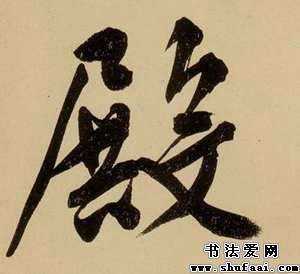 殿
书法爱网
www.shufaai.com